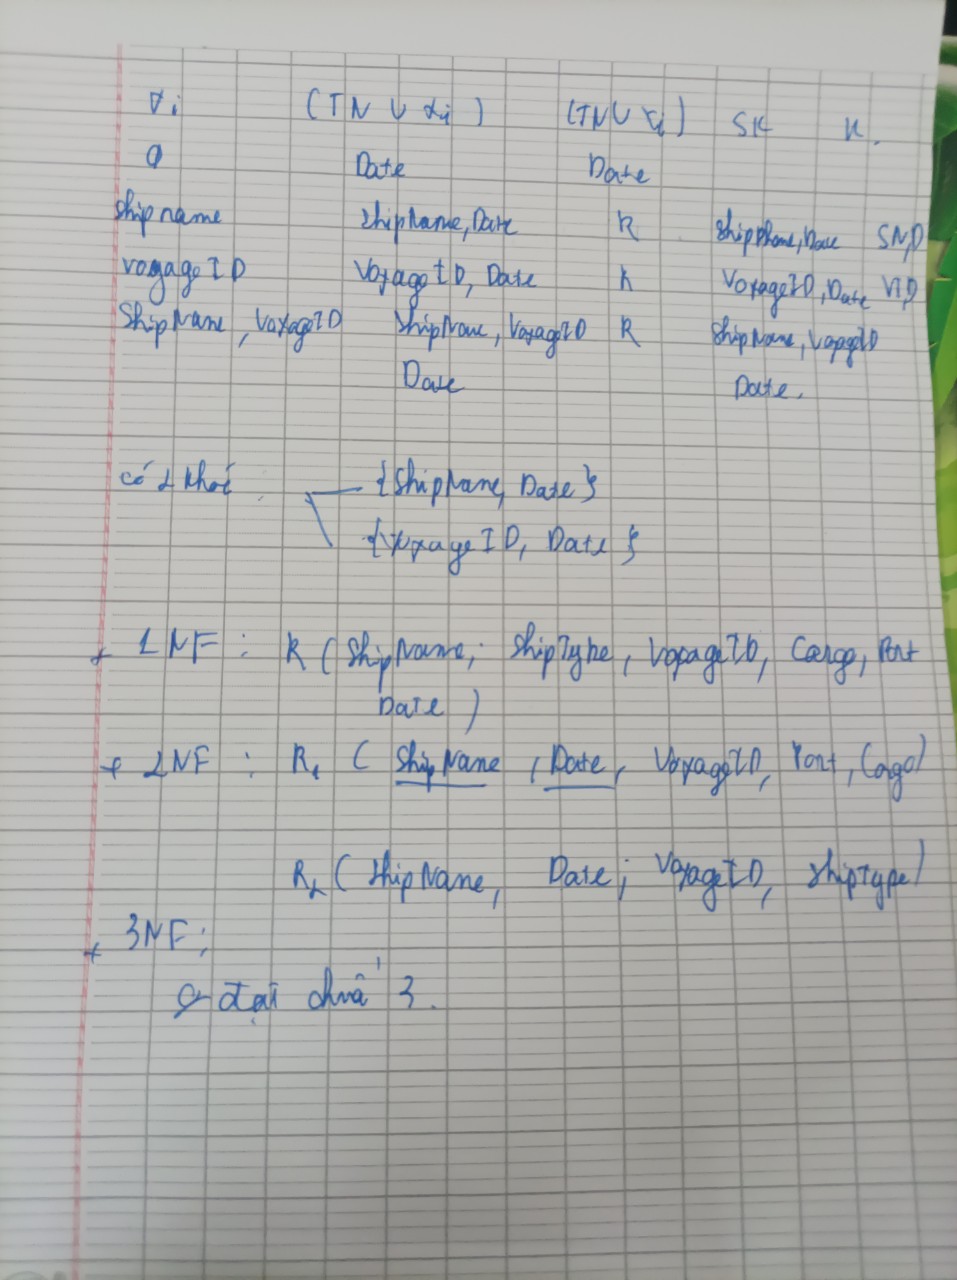 Xi (TN U Xi) (TN U Xi) SK K.
∅ Date Date
Shipname ShipName, Date R ShipName, Date SND
voyageID VoyageID, Date R VoyageID, Date VID
ShipName, VoyageID ShipName, VoyageID R ShipName, VoyageID
Date Date.
có 2 khoá {ShipName, Date}
{VoyageID, Date}
+ 1NF: R (ShipName, ShipType, VoyageID, Cargo, Port
Date)
+ 2NF: R1 (ShipName, Date, VoyageID, Port, Cargo)
R2 (ShipName, Date, VoyageID, ShipType)
+ 3NF:
đạt chuẩ 3.